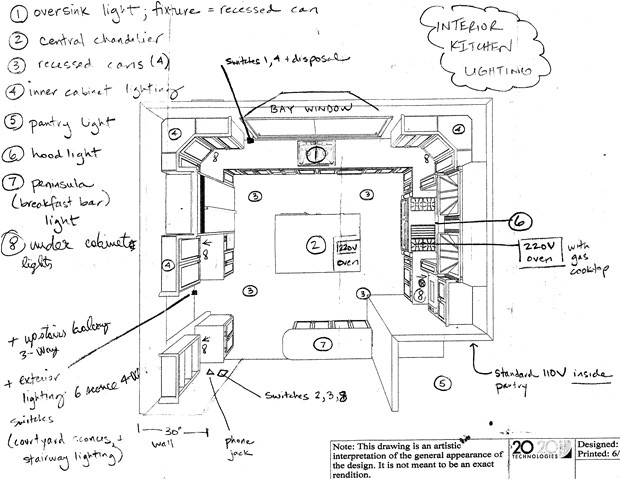 ① oversink light; fixture = recessed can
② central chandelier
③ recessed cans (4)
④ inner cabinet lighting
⑤ pantry light
⑥ hood light
⑦ peninsula
(breakfast bar)
light
⑧ under cabinet
lights
INTERIOR
KITCHEN
LIGHTING
switches 1, 4 + disposal
BAY WINDOW
4
4
8
8
1
3
3
6
2
220V
oven
220V
oven
with
gas
cooktop
4
8
8
3
3
+ upstairs balcony
3-way
+ exterior
lighting: 6 sconce 4-W
switches
(courtyard sconces, +
stairway lighting)
8
7
5
standard 110V inside
pantry
switches 2, 3, 8
30"
wall
phone
jack
Note: This drawing is an artistic
interpretation of the general appearance of
the design. It is not meant to be an exact
rendition.
20 20
TECHNOLOGIES
Designed:
Printed: 6/